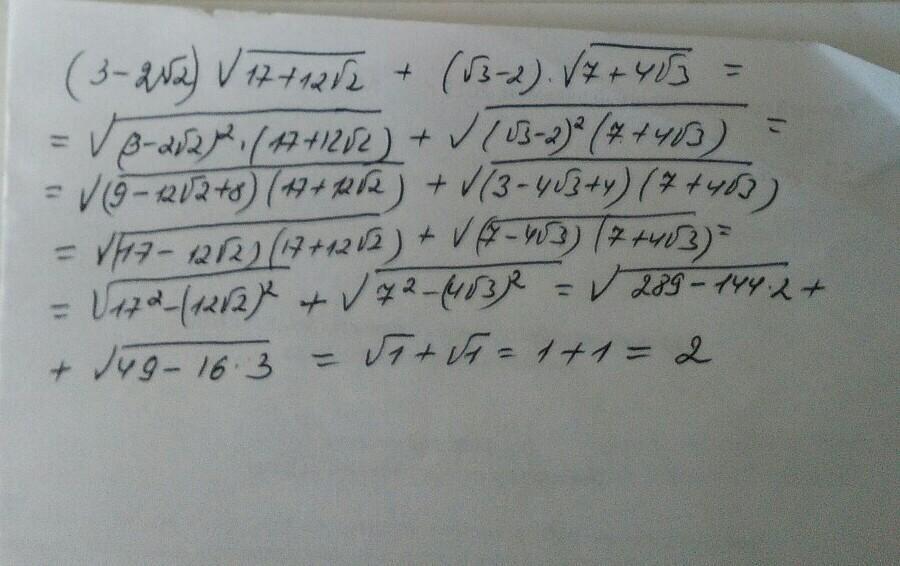 (3-2√2) √(17+12√2) + (√3-2)·√(7+4√3) =
= √((3-2√2)²·(17+12√2)) + √((√3-2)²(7+4√3)) =
= √((9-12√2+8)(17+12√2)) + √((3-4√3+4)(7+4√3))
= √((17-12√2)(17+12√2)) + √((7-4√3)(7+4√3)) =
= √(17²-(12√2)²) + √(7²-(4√3)²) = √(289-144·2) +
+ √(49-16·3) = √1+√1 = 1+1 = 2